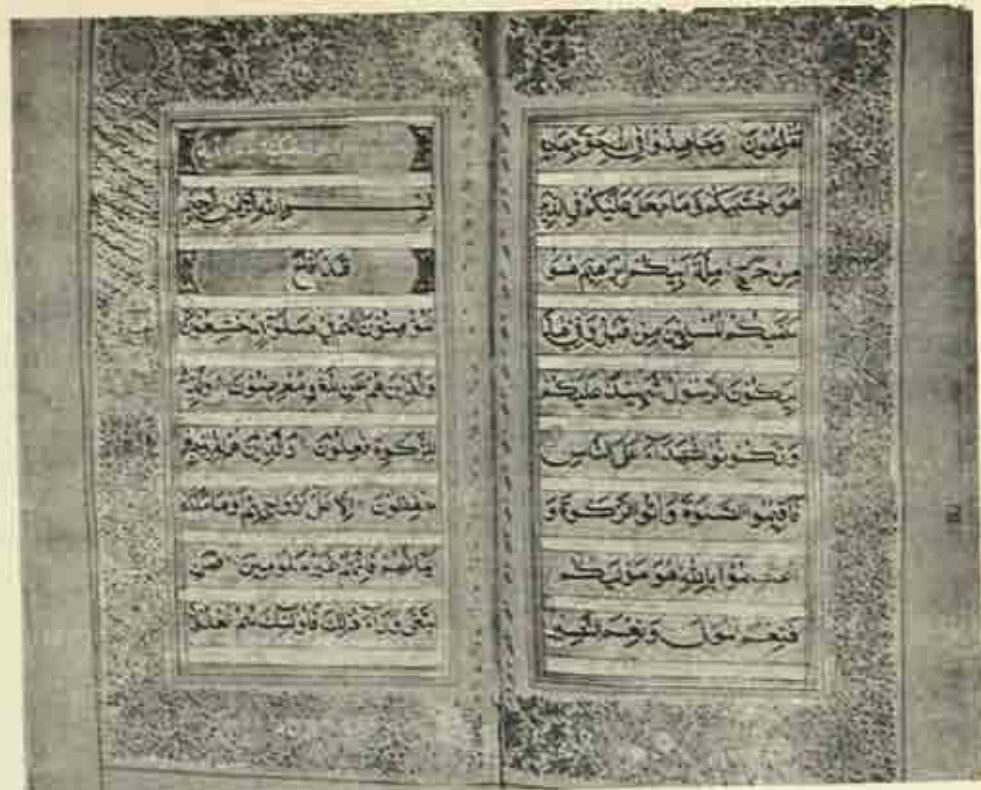 تفلحون وجاهدوا في الله حق جهاده
هو اجتبيكم وما جعل عليكم في الدين
من حرج ملة ابيكم ابرهيم هو
سميكم المسلمين من قبل وفي هذا
ليكون الرسول شهيدا عليكم
وتكونوا شهداء على الناس
فاقيموا الصلوة واتوا الزكوة و
اعتصموا بالله هو موليكم
فنعم المولى ونعم النصير
بسم الله الرحمن الرحيم
قد افلح
المؤمنون الذين هم في صلوتهم خشعون
والذين هم عن اللغو معرضون والذين هم
للزكوة فعلون والذين هم لفروجهم
حفظون الا على ازواجهم او ما ملكت
ايمانهم فانهم غير ملومين فمن
ابتغى وراء ذلك فاولئك هم العدون